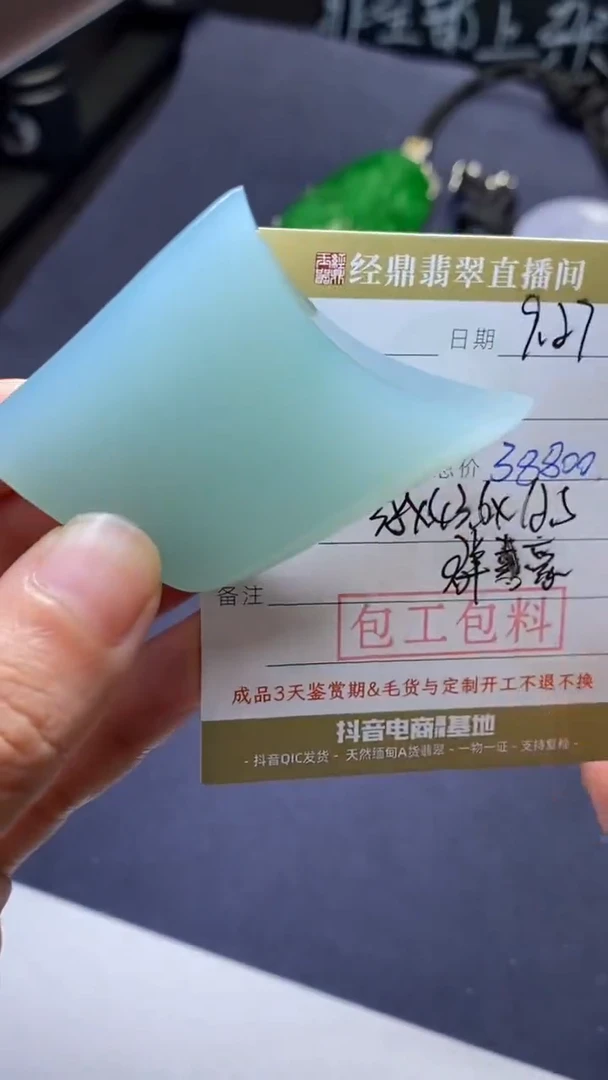 经鼎翡翠直播间
日期 9.27
总价 38800
43.6×12.5
备注
包工包料
成品3天鉴赏期&毛货与定制开工不退不换
抖音电商 基地
- 抖音QIC发货 - 天然缅甸A货翡翠 - 一物一证 - 支持复检 -